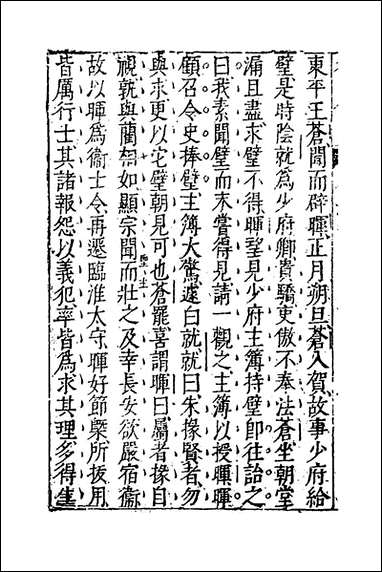 東平王蒼聞而辟暉正月朔旦蒼入賀故事少府給
璧是時陰就為少府卿貴驕吏傲不奉法蒼坐朝堂
漏且盡求璧不得暉望見少府主簿持璧即往詒之
曰我素聞璧而未嘗得見請一觀之主簿以授暉暉
顧召令史捧璧主簿大驚遽白就就曰朱掾賢者勿
與求更以它璧朝見可也蒼罷喜謂暉曰屬者掾自
視就與藺相如顯宗聞而壯之及幸長安欲嚴宿衞
故以暉為衞士令再遷臨淮太守暉好節槩所拔用
皆厲行士其諸報怨以義犯率皆為求其理多得生